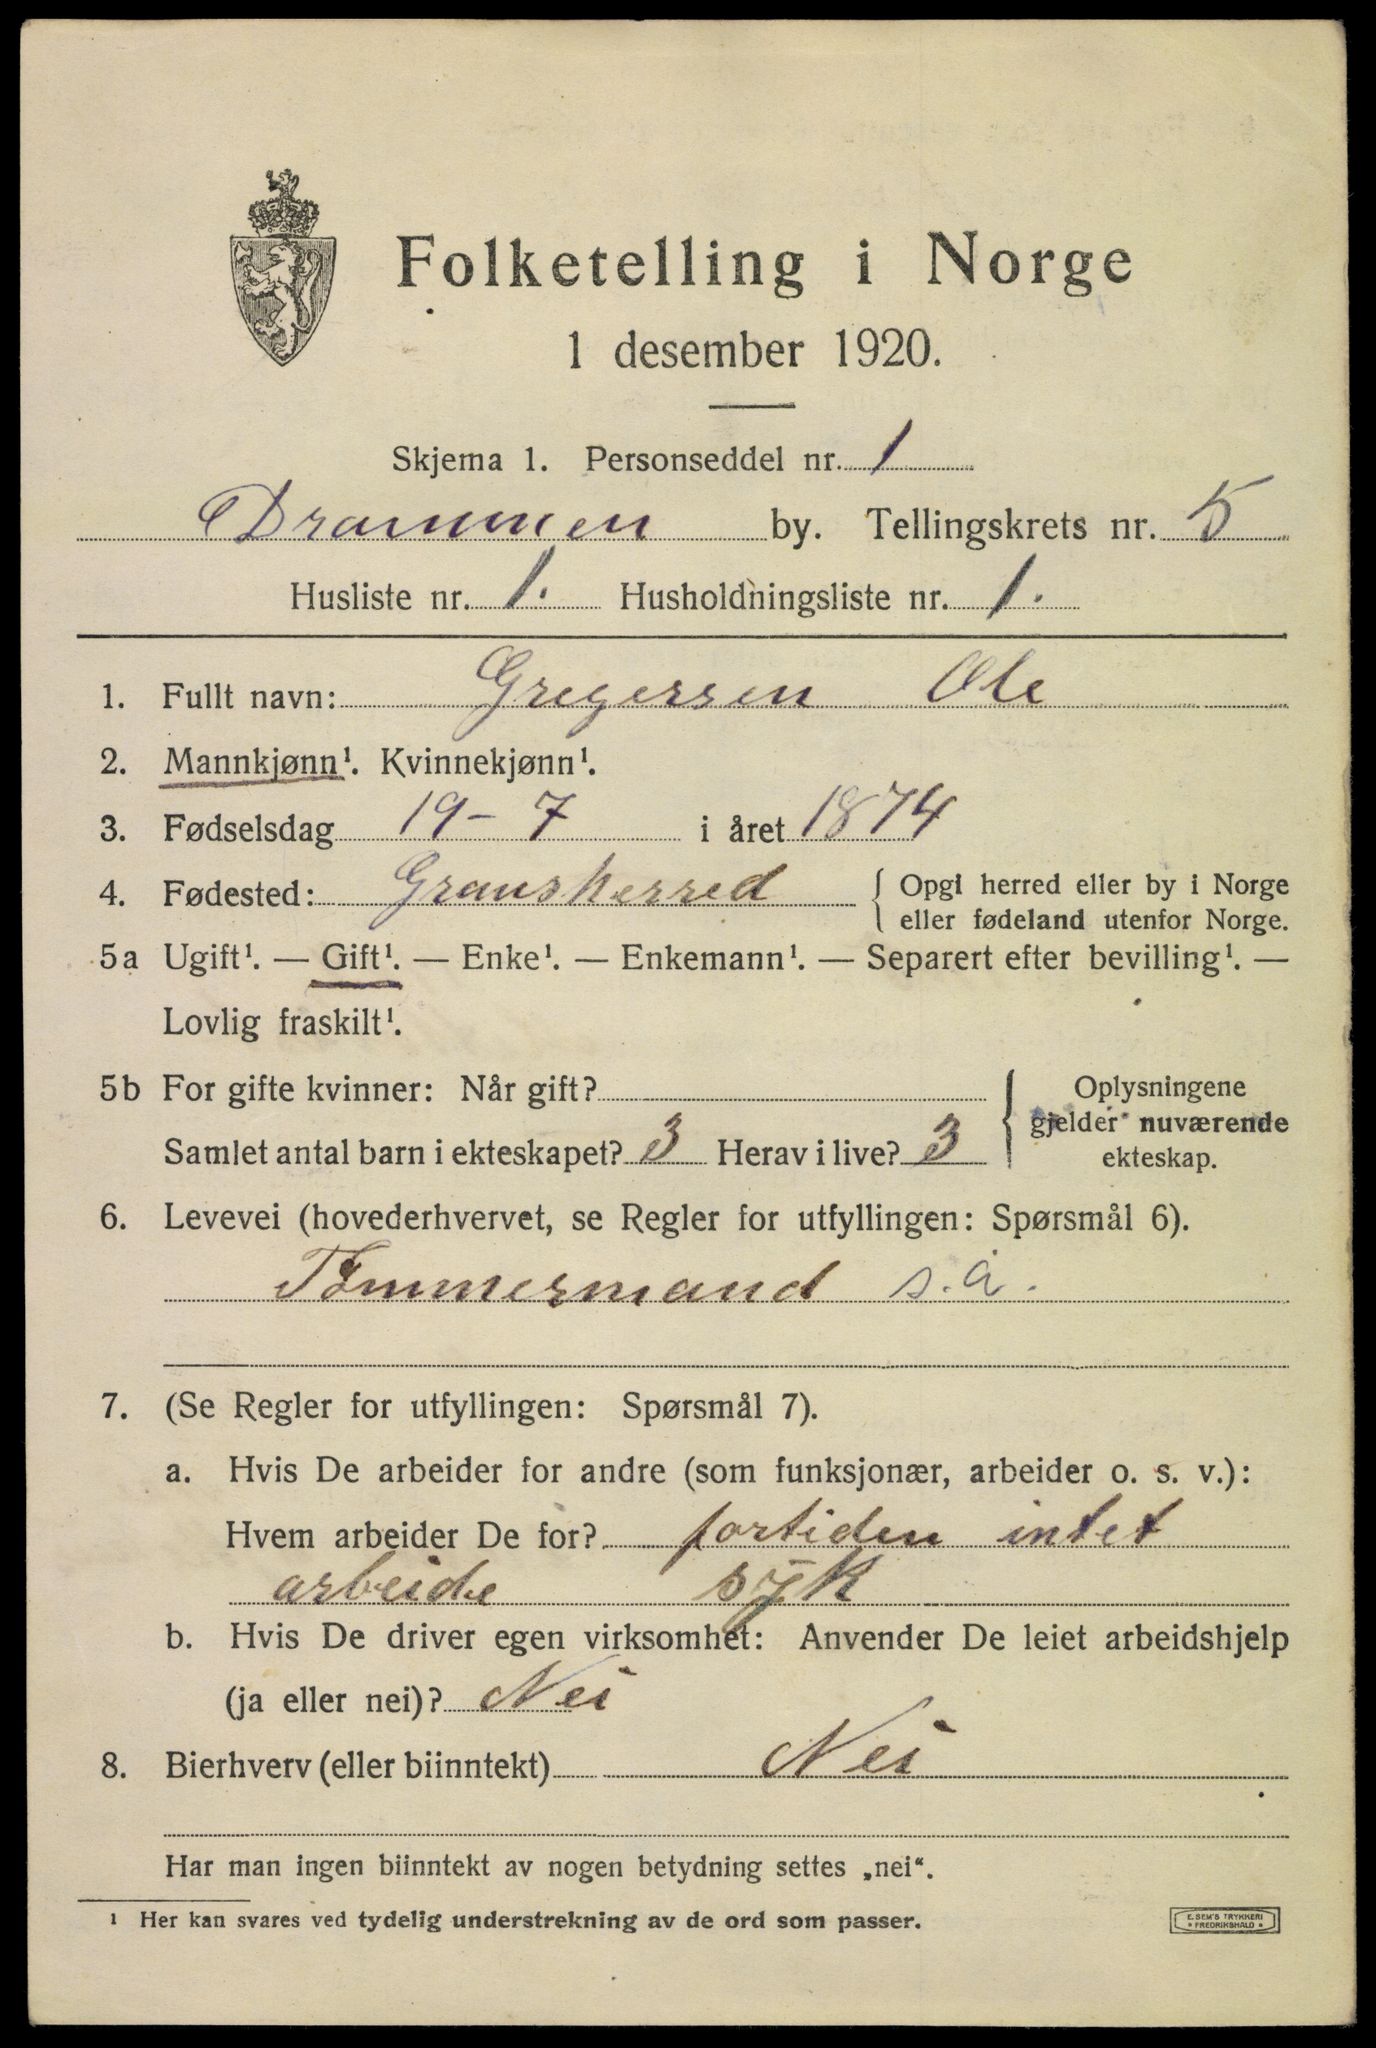 Folketelling i Norge
1 desember 1920.
Skjema 1. Personseddel nr. 1
Drammen by. Tellingskrets nr. 5
Husliste nr. 1. Husholdningsliste nr. 1.
1. Fullt navn: Gregersen Ole
2. Mannkjønn¹. Kvinnekjønn¹.
3. Fødselsdag 19 - 7 i året 1874
4. Fødested: Gransherred { Opgi herred eller by i Norge
eller fødeland utenfor Norge.
5a Ugift¹. — Gift¹. — Enke¹. — Enkemann¹. — Separert efter bevilling¹. —
Lovlig fraskilt¹.
5b For gifte kvinner: Når gift? { Oplysningene
gjelder nuværende
Samlet antal barn i ekteskapet? 3 Herav i live? 3 ekteskap.
6. Levevei (hovederhvervet, se Regler for utfyllingen: Spørsmål 6).
Tømmermand s.a.
7. (Se Regler for utfyllingen: Spørsmål 7).
a. Hvis De arbeider for andre (som funksjonær, arbeider o. s. v.):
Hvem arbeider De for? fortiden intet
arbeide syk
b. Hvis De driver egen virksomhet: Anvender De leiet arbeidshjelp
(ja eller nei)? Nei
8. Bierhverv (eller biinntekt) Nei
Har man ingen biinntekt av nogen betydning settes „nei“.
¹ Her kan svares ved tydelig understrekning av de ord som passer.
E. SEM'S TRYKKERI
• FREDRIKSHALD •